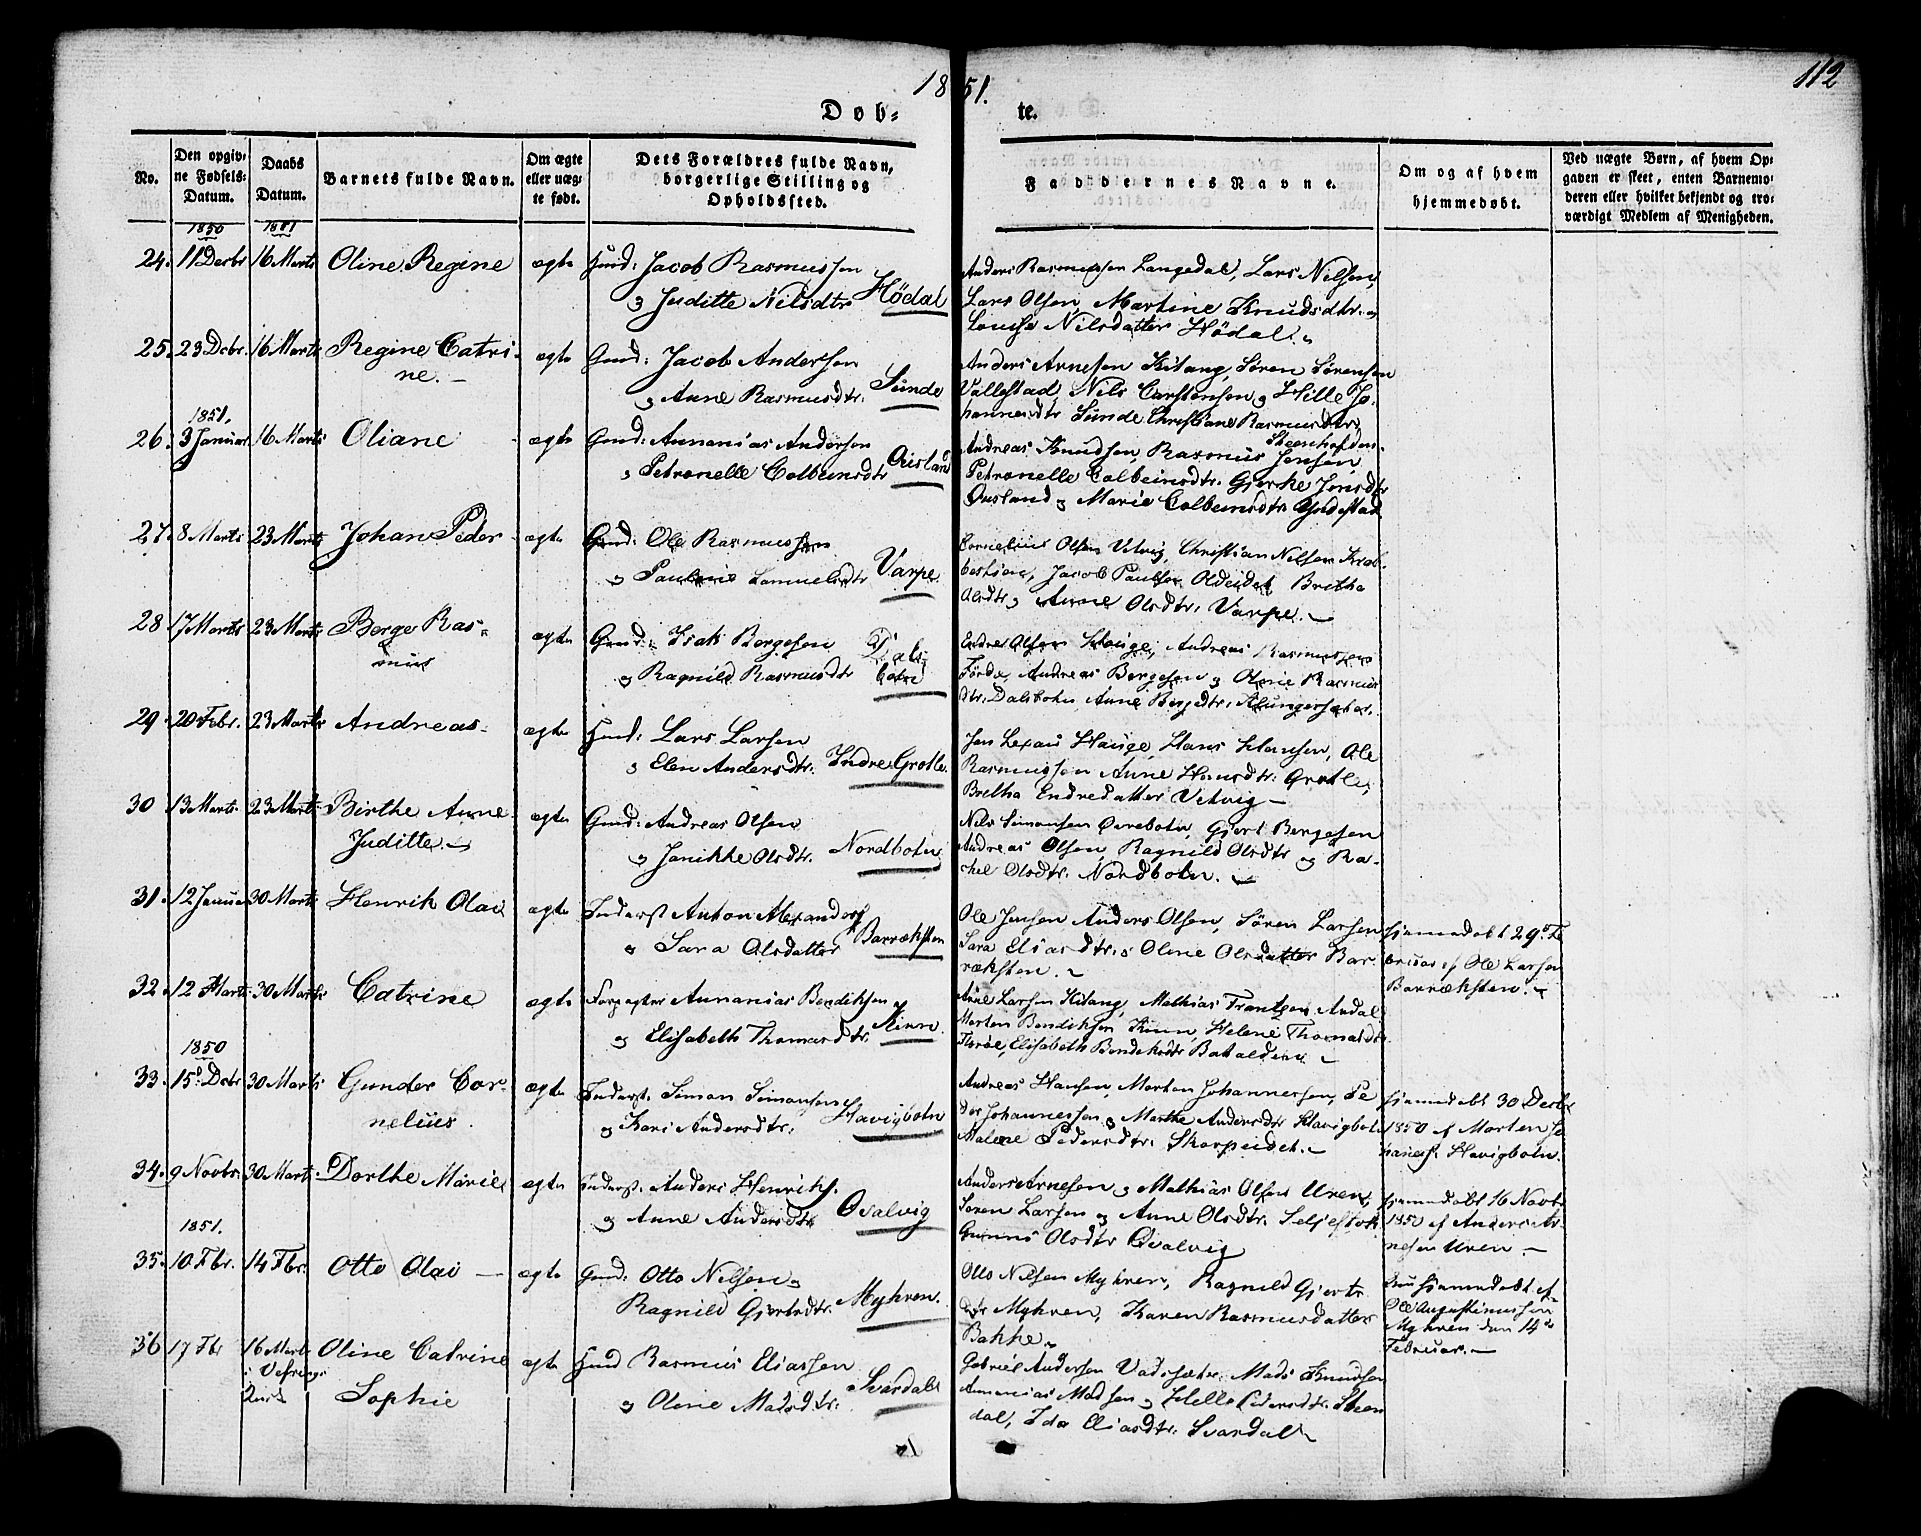 1851.
112
Døb-
te.
No.
Den opgiv-
ne Fødsels-
Datum.
Daabs
Datum.
Barnets fulde Navn.
Om ægte
eller uæg-
te født.
Dets Forældres fulde Navn,
borgerlige Stilling og
Opholdssted.
Faddernes Navne.
Om og af hvem
hjemmedøbt.
Ved uægte Børn, af hvem Op-
gaven er skeet, enten Barnemo-
deren eller hvilket bekjendt og tro-
værdigt Medlem af Menigheden.
1850
1851
24. 11 Decbr 16 Marts Oline Regine ægte Huusm: Jacob Rasmussen
og Juditte Nilsdtr Hödal
Anders Rasmussen Langedal, Lars Nilsen,
Lars Olsen, Martine Knudsdtr. og
Louise Nilsdatter Hödal.
25. 23 Decbr. 16 Marts Regine Catri-
ne. ægte Gmd: Jacob Andersen
og Anne Rasmusdtr. Sunde
Anders Arnesen Kitang, Sören Sörensen
Vallestad, Nils Carstensen og Hille Jo-
hannesdtr Sunde Christiane Rasmusdtr
Steenhofden
1851.
26. 3 Januar 16 Marts Oliane ægte Gmd: Annanias Andersen
og Petronelle Colbeinsdtr Ousland
Andreas Knudsen, Rasmus Jensen,
Petronelle Colbeinsdtr. Gjerthe Jensdtr
Ousland og Marie Colbeinsdtr Yndestad
27. 8 Marts 23 Marts Johan Peder ægte Gmd: Ole Rasmussen
og Pauline Samuelsdtr Varpe
Cornelius Olsen Vetvig, Christian Nilsen Krab-
bestien, Jacob Paulsen Oldeidet Brithe
Olsdtr og Anne Olsdtr. Varpe.
28 17 Marts 23 Marts Berge Ras-
mus ægte Gmd: Isak Bergesen
og Ragnild Rasmusdtr Dals-
botn
Endre Olsen Hauge, Andreas Rasmussen
Förde, Andreas Bergesen og Oline Rasmus
dtr. Dalsbotn Anne Bergsdtr. Klungersæter.
29. 20 Febr. 23 Marts Andreas ægte Huusm: Lars Larsen
og Elen Andersdtr. Indre Grotle.
Jon Lexau Hauge, Hans Hansen, Ole
Rasmussen Anne Hansdtr: Grotle,
Bretha Endredatter Vetvig
30 13 Marts 23 Marts Birthe Anne
Juditte. ægte Gmd: Andreas Olsen
og Janikke Olsdtr. Nordbotn
Nils SimonsenÖvrebotn, Gjert Bergesen
Andreas Olsen Ragnild Olsdtr og Ra-
chel Olsdtr. Nordbotn.
31. 12 Januar 30 Marts Henrik Olai ægte Inderst Anton Alexanders
og Sara Olsdatter Barræksten
Ole Jensen Anders Olsen, Sören Larsen
Sara Eliasdtr. og Oline Olsdatter Bar-
ræksten.
Hjemmedøbt 29de Fe
bruar af Ole Larsen
Barræksten.
32. 12 Marts 30 Marts Catrine ægte Forpagter Annanias Bendiksen
og Elisabeth Thomasdtr. Kinn
Arne Larsen Kitang, Mathias Frantzen Andal
Morten Bendiksen Kinn, Helene Thomasdtr
Elisabeth Bendiksdtr Batalden
1850
33. 15de Decbr 30 Marts Gunder Cor-
nelius. ægte Inderst. Simon Simonsen
og Kari Andersdtr. Havigbotn
Andreas Hansen, Morten Johannessen, Pe
der Johannessen og Marthe Andersdtr Havigbotn
Malene Pedersdtr. Skorpeidet.
Hjemmedøbt 30 Decbr
1850 af Morten Jo
hanes. Havigbotn.
34. 9 Novbr. 30 Marts Dorthe Marie ægte Inderst. Anders Henriks.
og Anne Andersdtr Qvalvig
Anders Arnesen og Mathias Olsen Uren,
Sören Larsen og Anne Olsdtr. Seljestok
Gunne Olsdtr Qvalvig
Hjemmedøbt 16 Novbr
1850 af Anders Ar-
nesen Uren.
1851.
35. 10 Fbr. 14 Fbr. Otto Olai ægte Gmd: Otto Nilsen og
Ragnild Gjertsdtr. Myhren.
Otto Nilsen Myhren, Ragnild Gjerts
dtr Myhren, Karen Rasmusdatter
Bakke.
hjemmedøbt af
Ole Augustinussen
Myhren den 14de
Februar.
36 17 Fbr 16 Marts
i Vefrings
Oline Catrine
Sophie ægte Huusmd Rasmus Eliassen
og Oline Madsdtr. Svardal
Gabriel Andersen Vadsæter, Mads Knudsen
Annanias Madsen og Helle Pedersdtr. Steen
dal, Ida Eliasdtr. Svardal